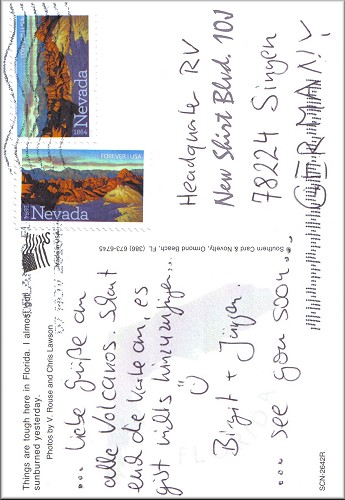 Things are tough here in Florida. I almost got
sunburned yesterday.
Photos by V. Rouse and Chris Lawson
... liebe Grüße an
alle Volcanos. Schaut
euch die Karte an, es
gibt nichts hinzuzufügen...
Birgit + Jürgen.
... see you soon...
SCN-2642R
FLORIDA
Southern Card & Novelty, Ormond Beach, FL (386) 673-6745
Made in USA
1864
Nevada
FOREVER | USA
1864
Nevada
Headquarter RV
New Shirt Blvd. 10J
78224 Singen
GERMANY